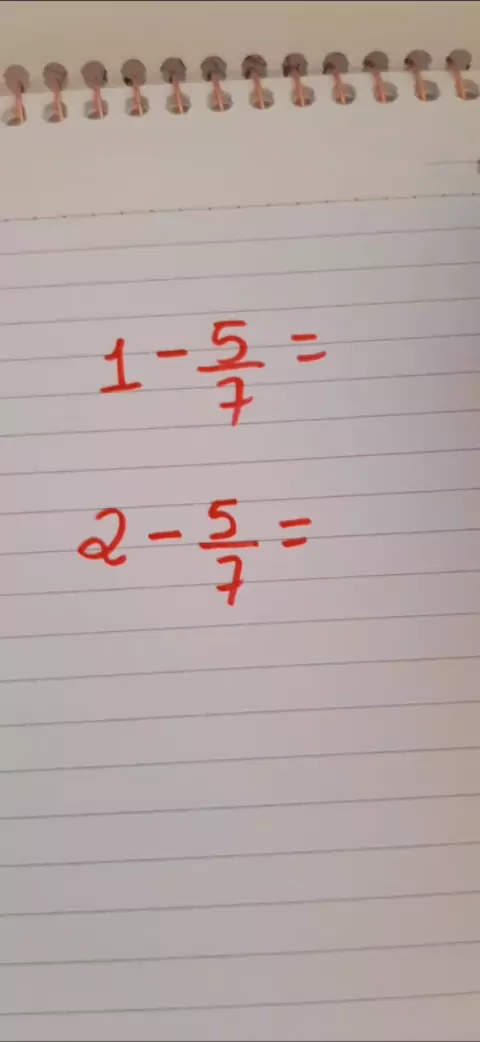 1 - 5/7 =
2 - 5/7 =